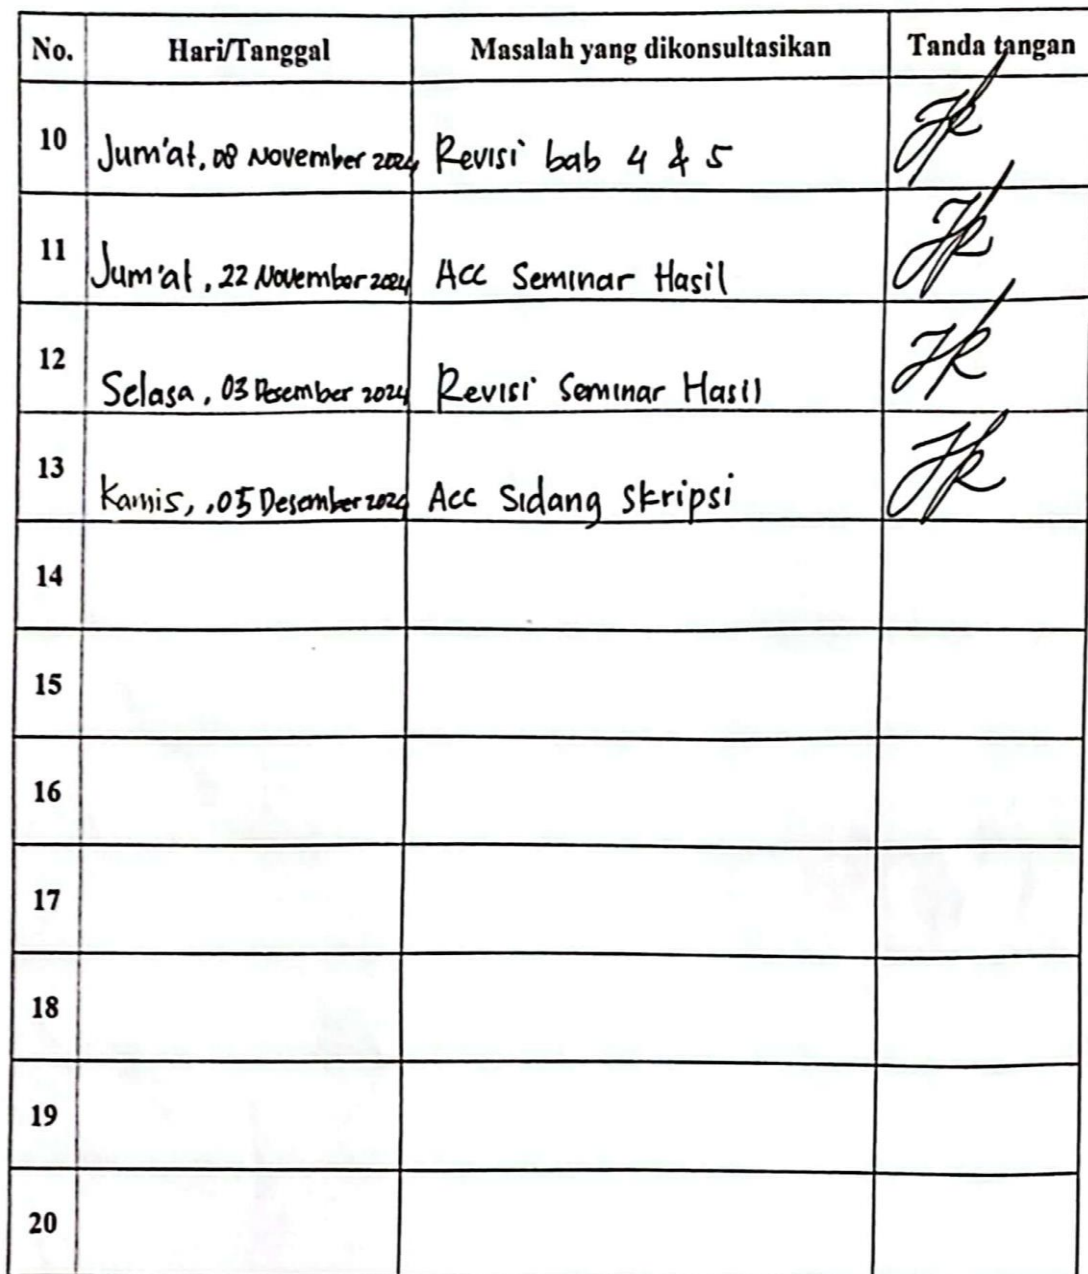 No. Hari/Tanggal Masalah yang dikonsultasikan Tanda tangan
10 Jum'at, 08 November 2024 Revisi bab 4 & 5
11 Jum'at, 22 November 2024 Acc Seminar Hasil
12 Selasa, 03 Desember 2024 Revisi Seminar Hasil
13 Kamis, , 05 Desember 2024 Acc Sidang Skripsi
14
15
16
17
18
19
20